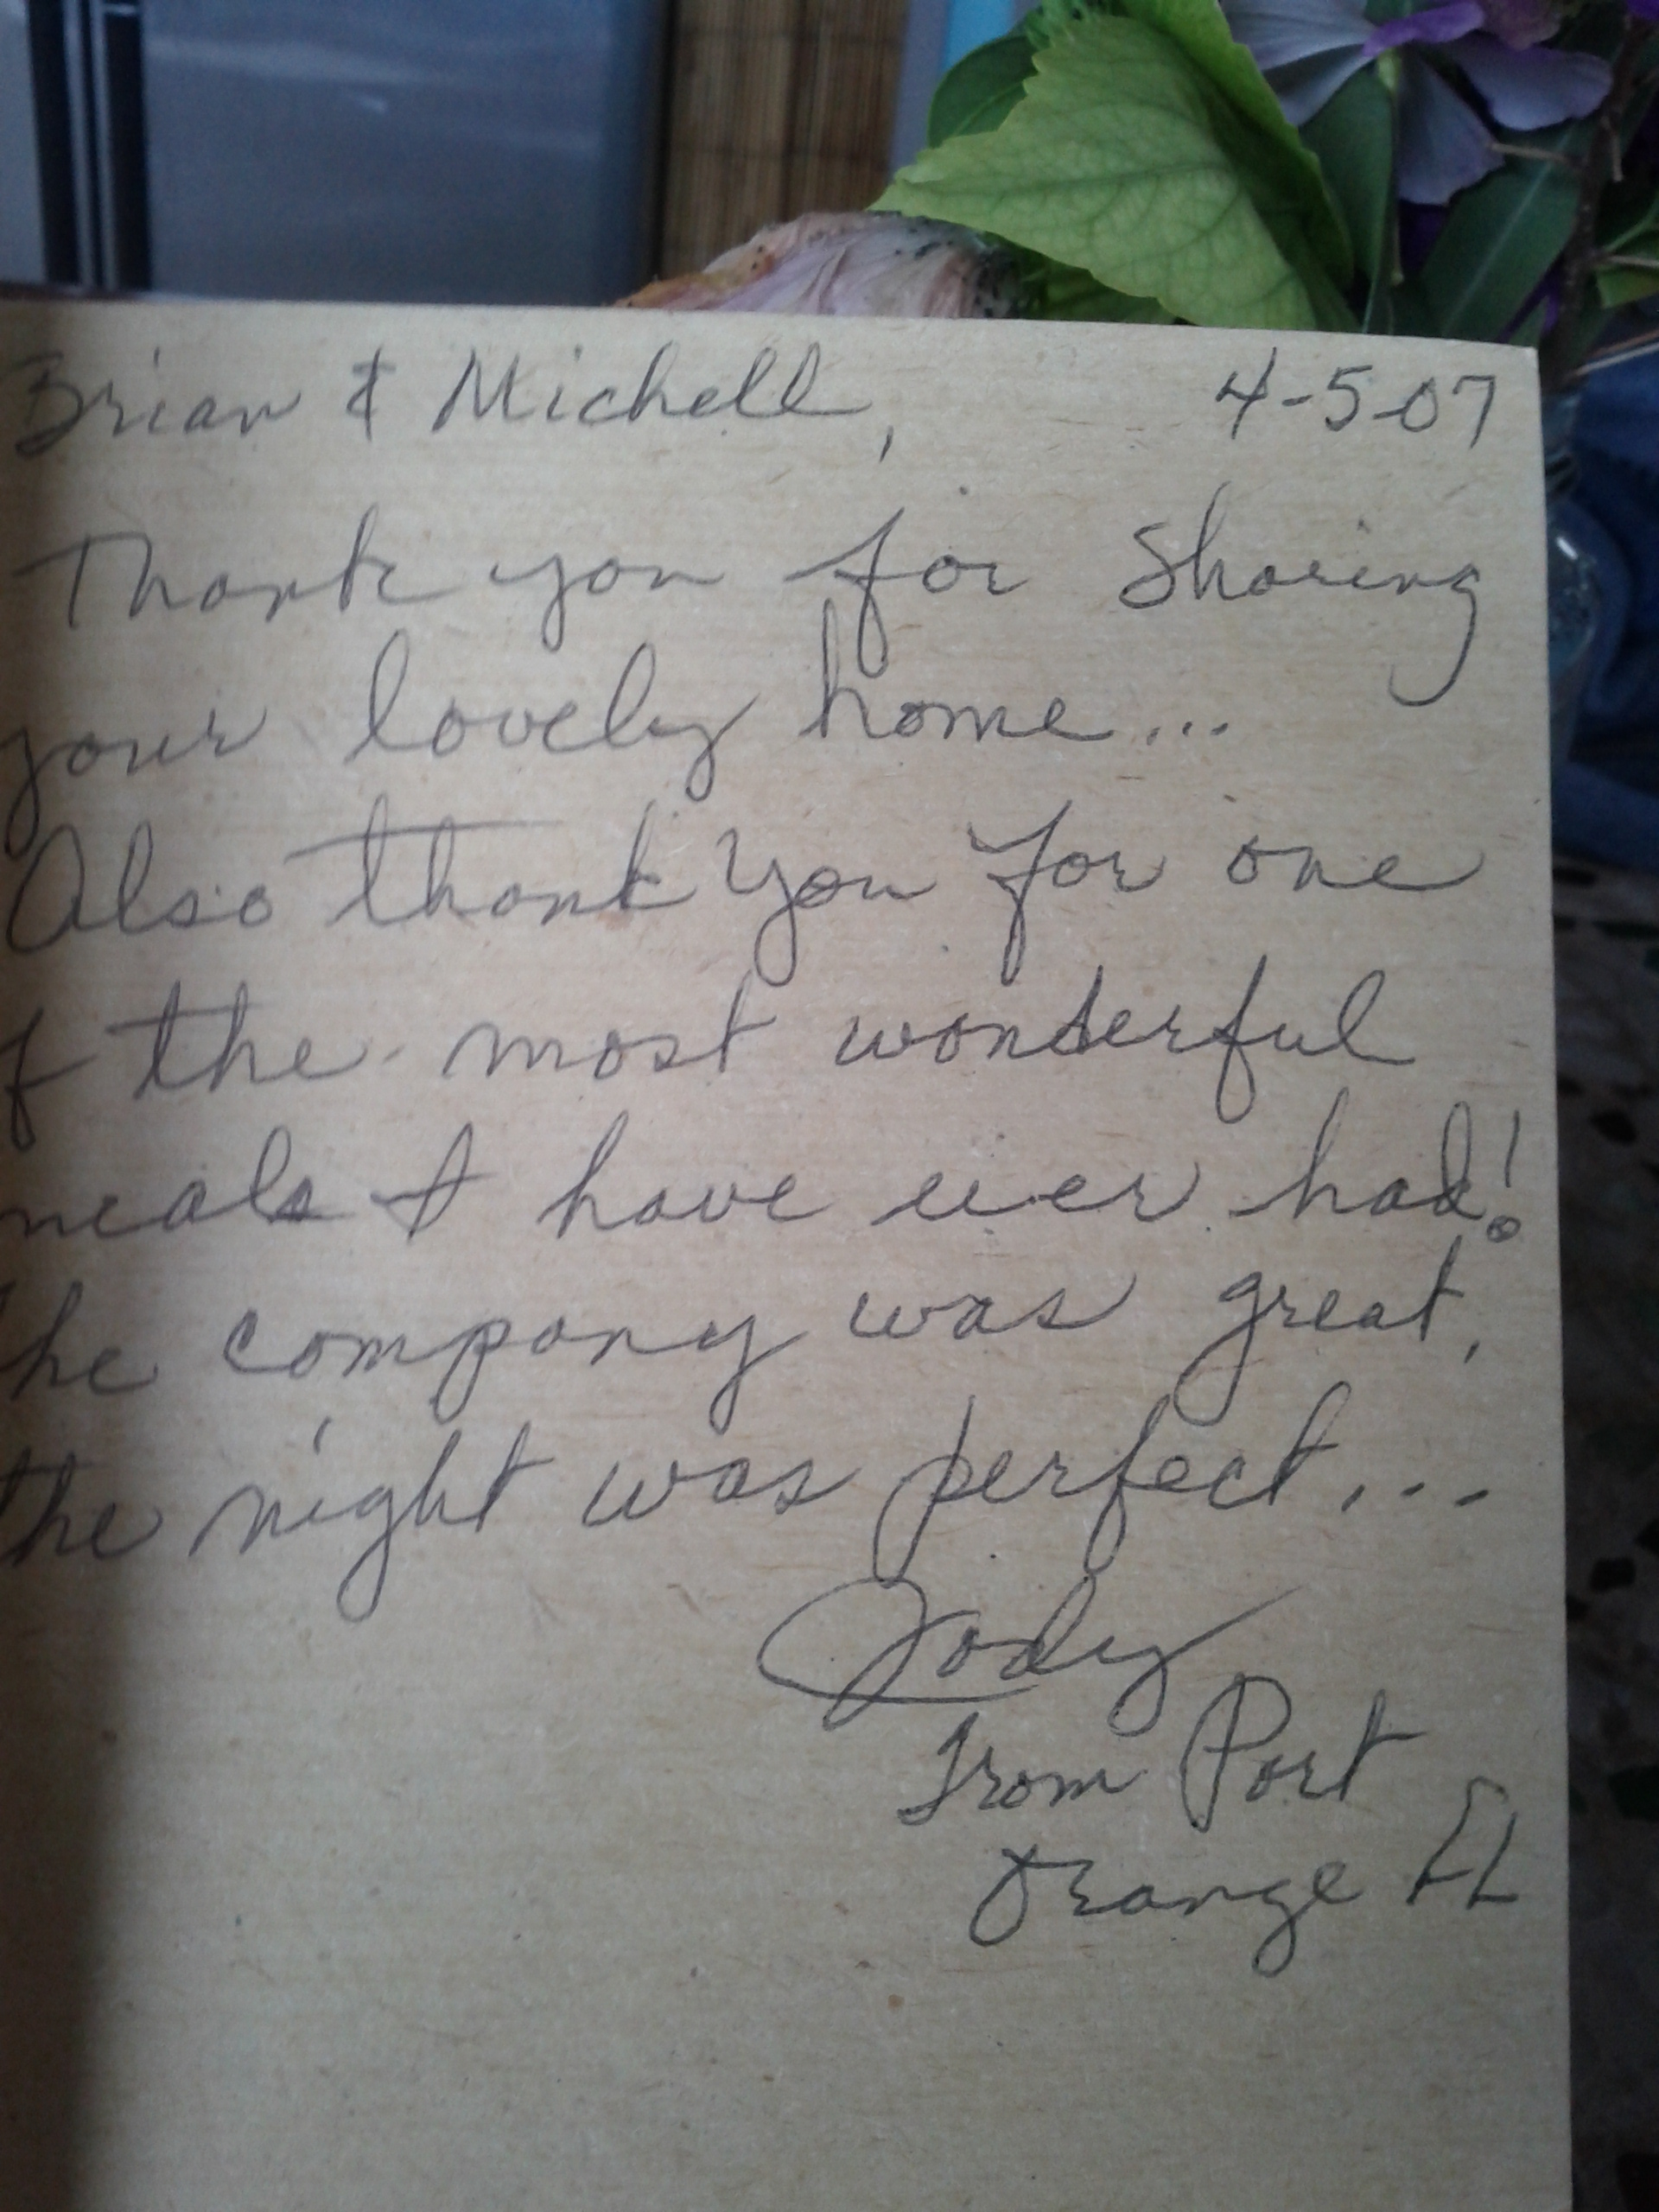 Brian & Michell, 4-5-07
Thank you for Sharing
your lovely home...
Also thank you for one
f the most wonderful
meals I have ever had!
he company was great,
the night was perfect...
Jody
From Port
Orange FL